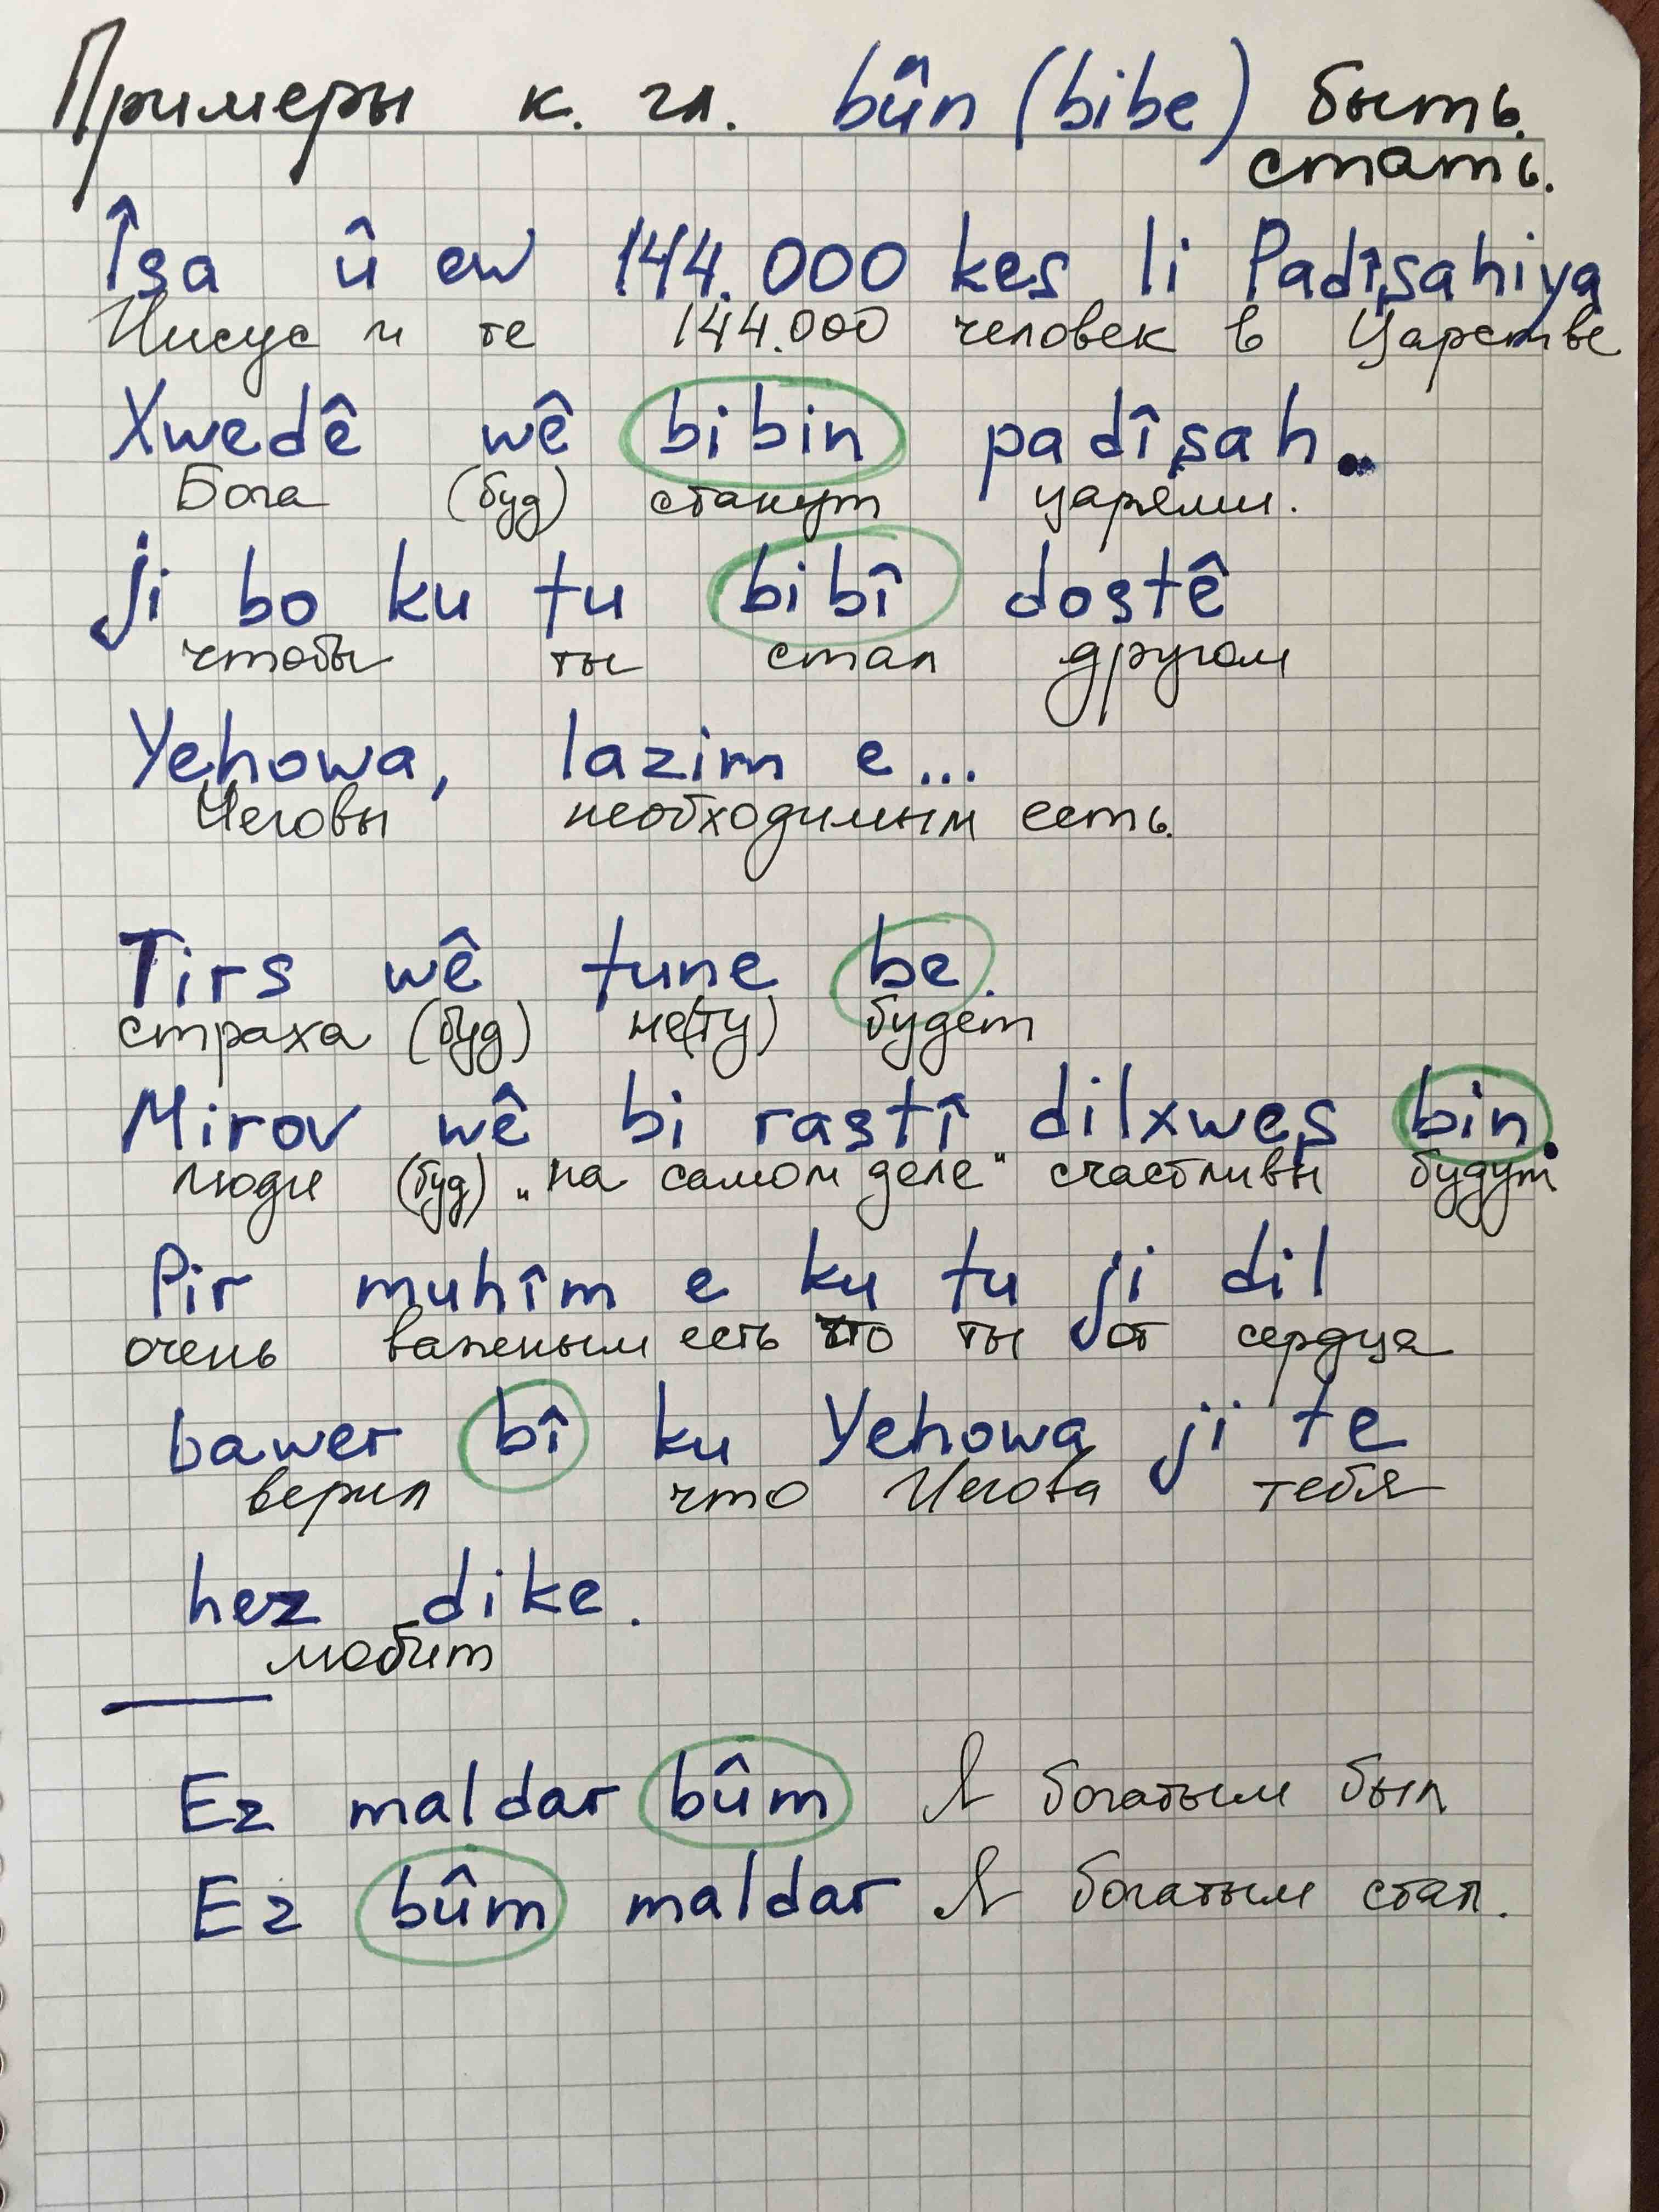 Примеры к. гл. bûn (bibe) быть.
стать.
Îsa û ew 144.000 kes li Padîşahiya
Иисус и те 144.000 человек в Царстве
Xwedê wê bibin padîşah.
Бога (буд) станут царями.
ji bo ku tu bibî dostê
чтобы ты стал другом
Yehowa, lazim e...
Иеговы необходимым есть.
Tirs wê tune be.
страха (буд) не(ту) будет
Mirov wê bi rastî dilxweş bin.
люди (буд) „на самом деле" счастливы будут
Pir muhîm e ku tu ji dil
очень важеным есть что ты от сердца
bawer bî ku Yehowa ji te
верил что Иегова тебя
hez dike.
любит
Ez maldar bûm Я богатым был
Ez bûm maldar Я богатым стал.